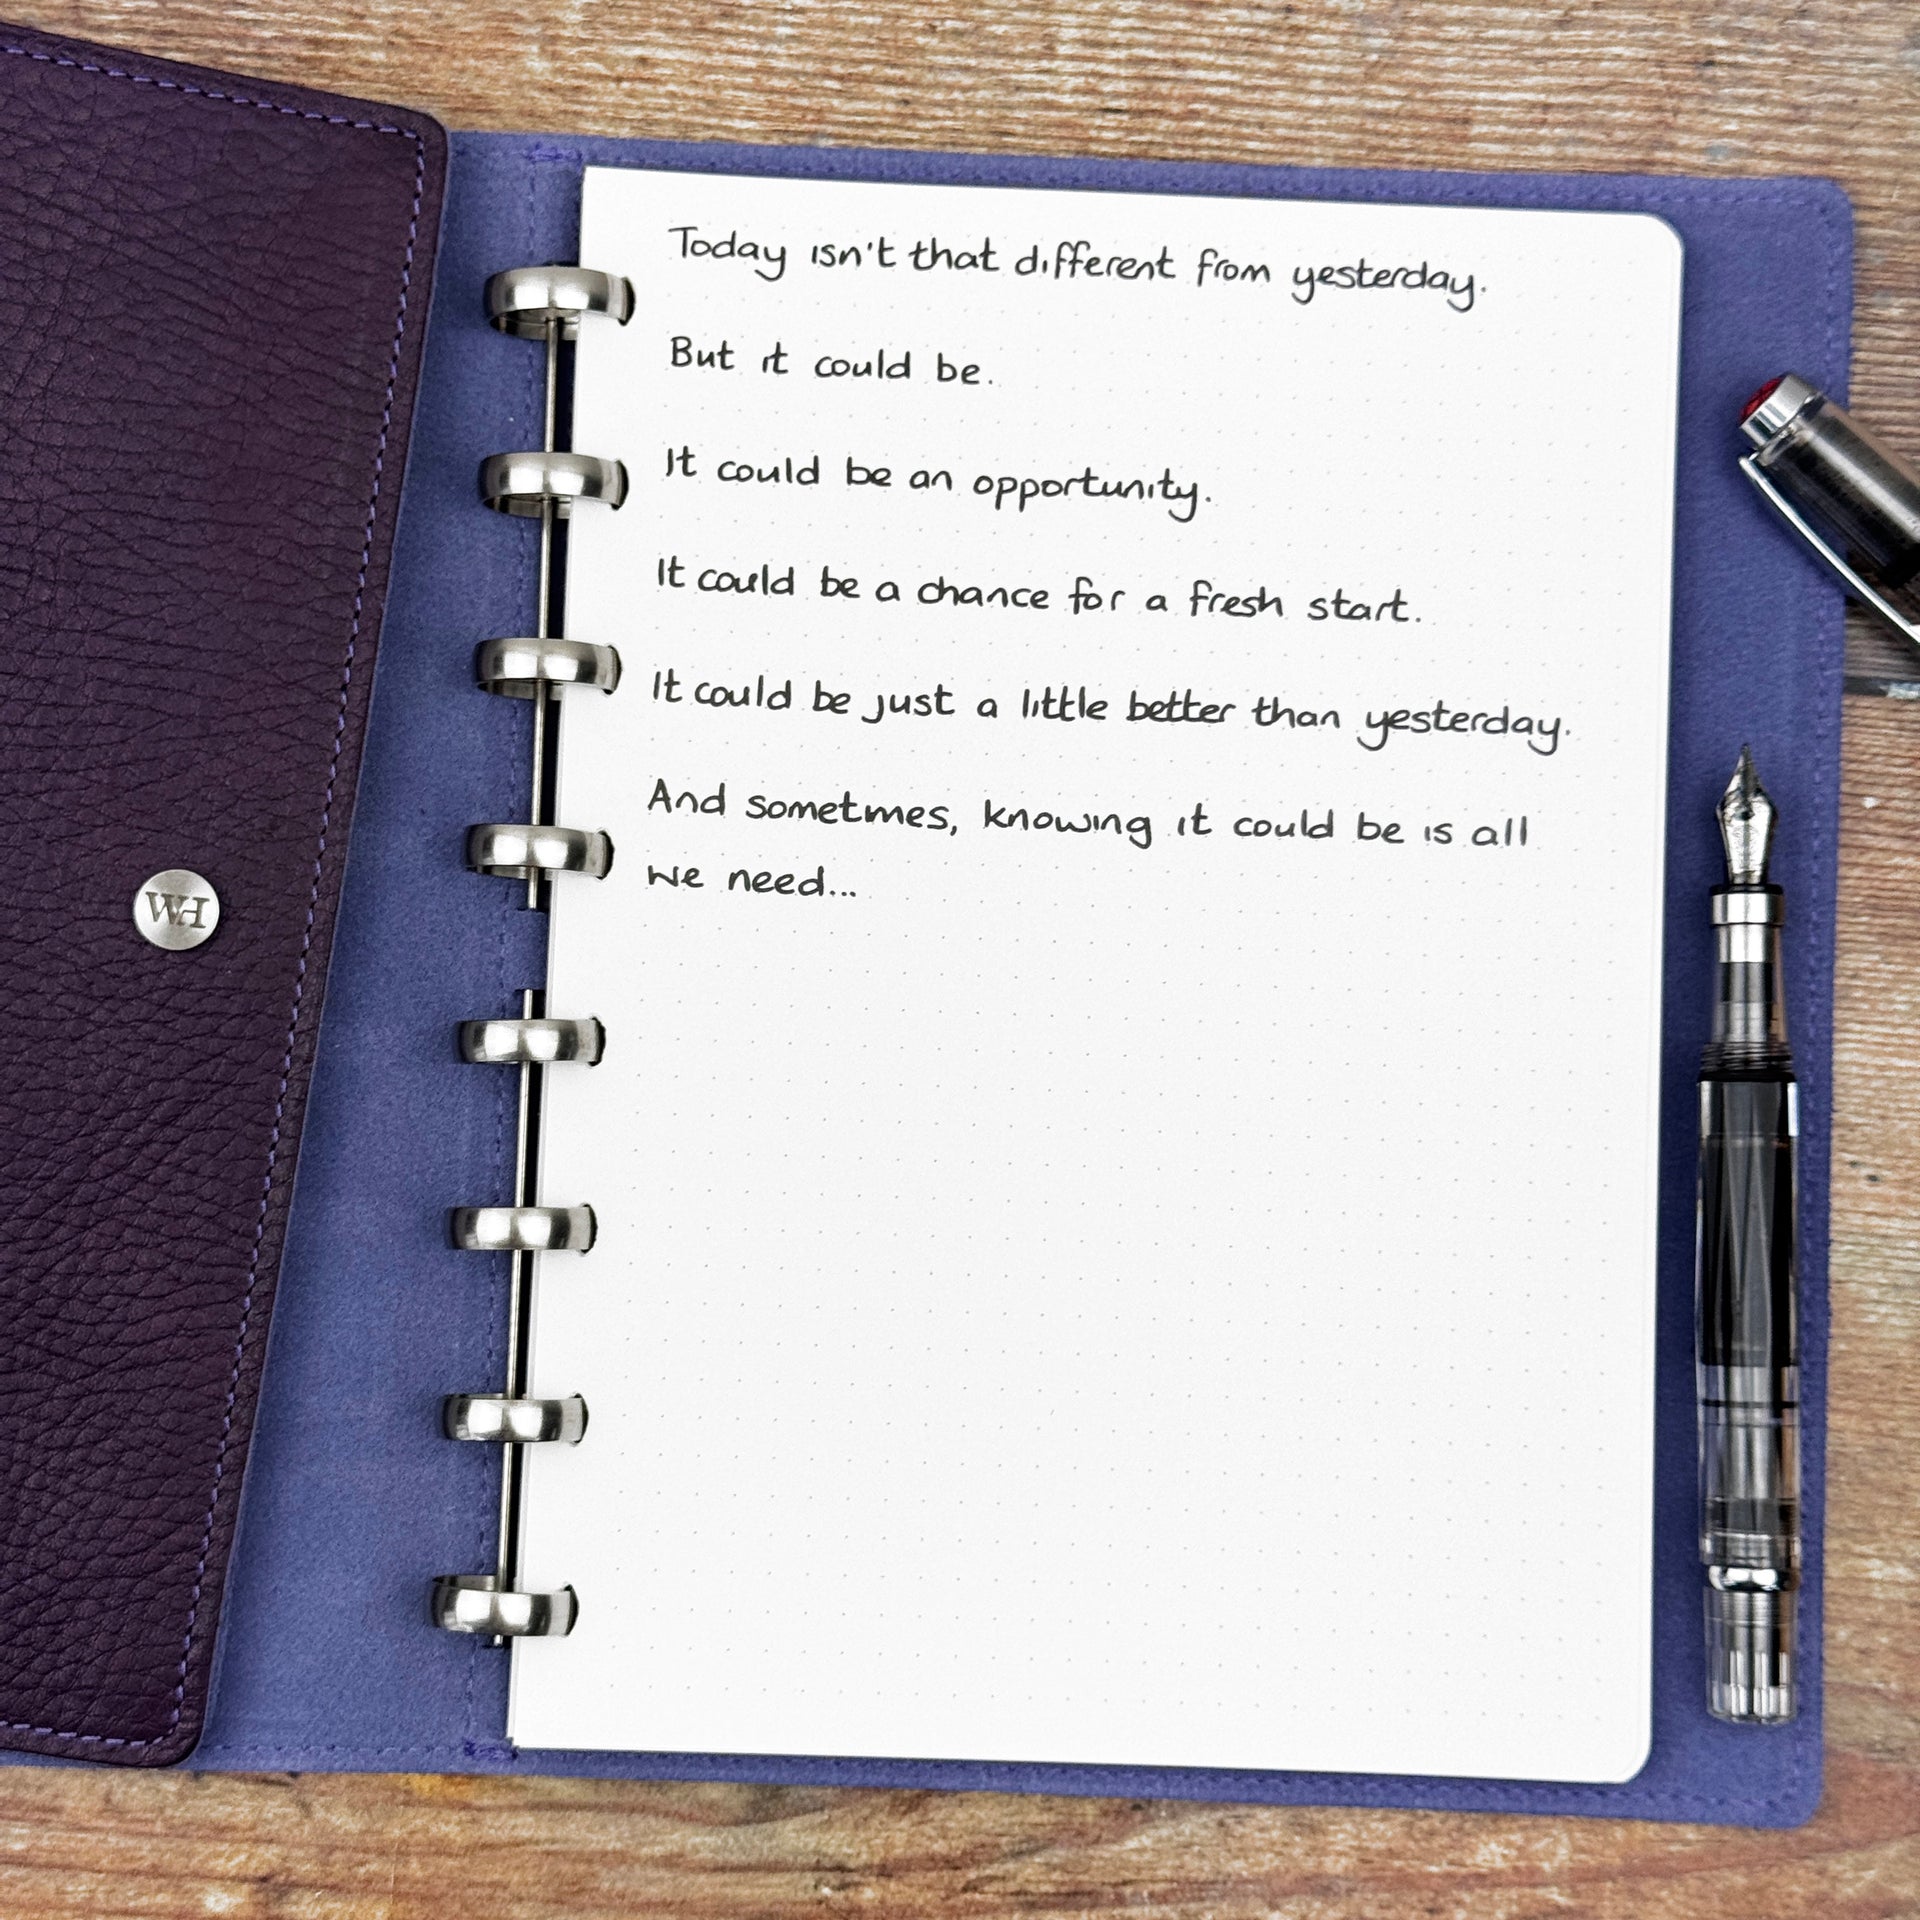 Today isn't that different from yesterday.
But it could be.
It could be an opportunity.
It could be a chance for a fresh start.
It could be just a little better than yesterday.
And sometimes, knowing it could be is all
we need...
WH